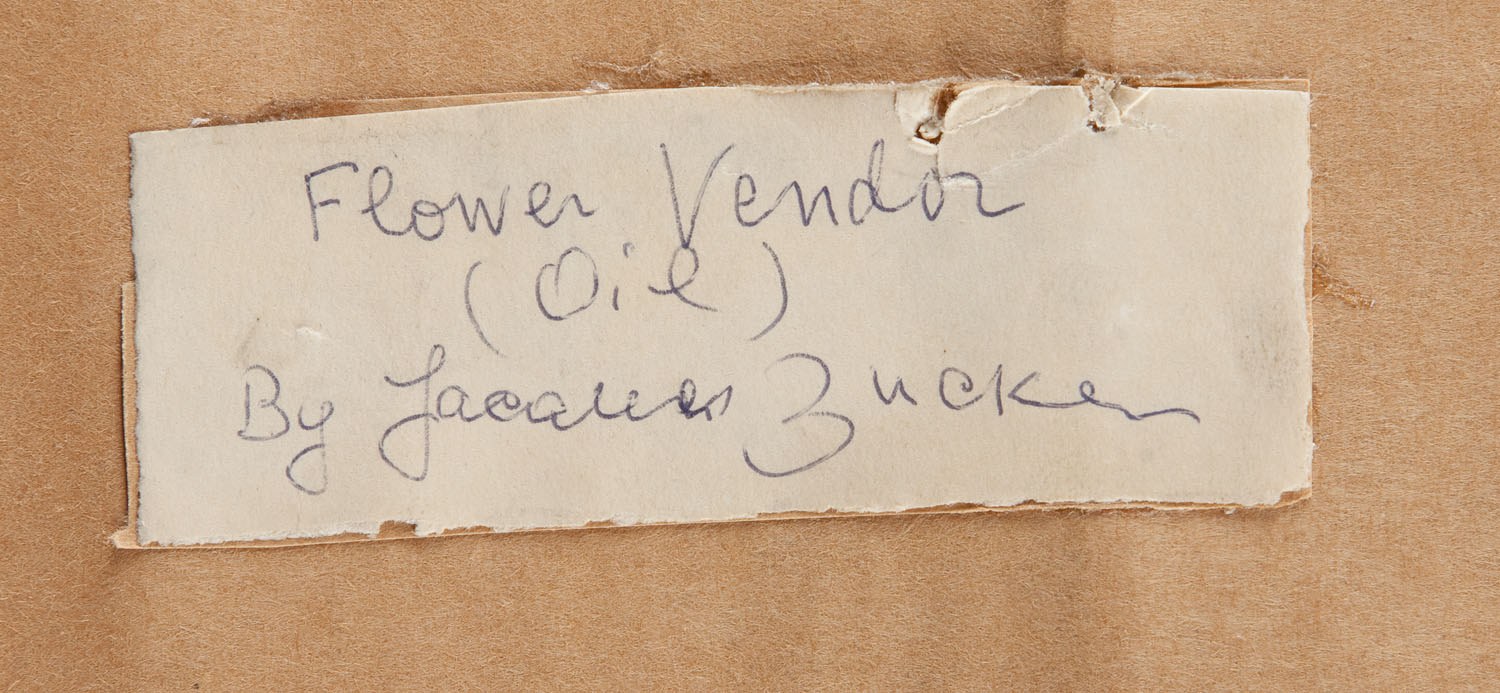 Flower Vendor
(Oil)
By Jacques Zucker